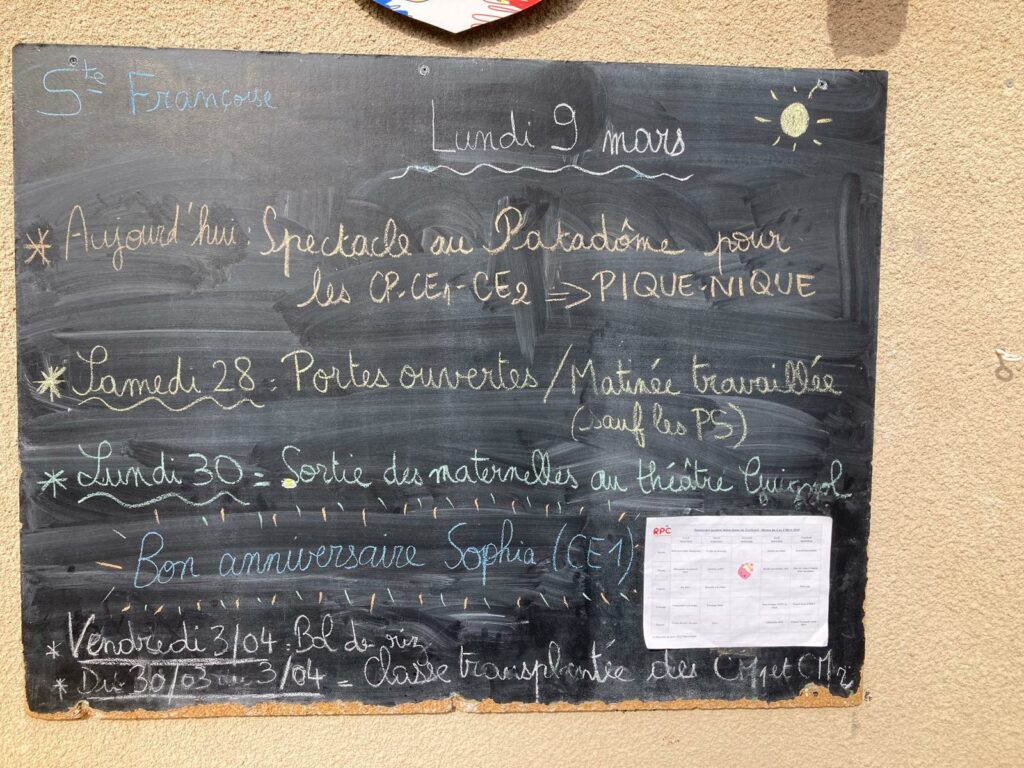 Ste Françoise
Lundi 9 mars
* Aujourd'hui : Spectacle au Patadôme pour
les CP-CE1-CE2 => PIQUE-NIQUE
* Samedi 28 : Portes ouvertes / Matinée travaillée
(sauf les PS)
* Lundi 30 = Sortie des maternelles au théâtre Guignol
Bon anniversaire Sophia (CE1)
RPC
* Vendredi 3/04 : Bol de riz
* Du 30/03 au 3/04 = classe transplantée des CM1 et CM2